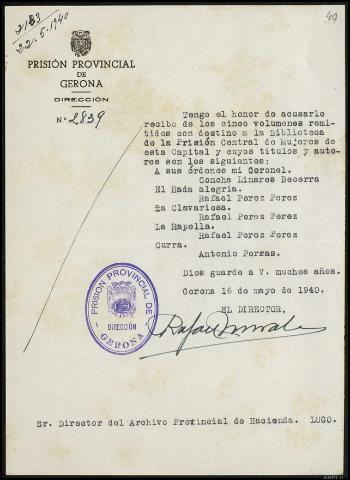 2183
22-5-1940
40
PRISIÓN PROVINCIAL
DE
GERONA
DIRECCIÓN
N.º 2839
Tengo el honor de acusarle
recibo de los cinco volumenes remi-
tidos con destino a la Biblioteca
de la Prisión Central de Mujeres de
esta Capital y cuyos titulos y auto-
res son los siguientes:
A sus órdenes mi Coronel.
Concha Linares Becerra
El Hada alegria.
Rafael Perez Perez
La Clavariesa.
Rafael Perez Perez
La Rapella.
Rafael Perez Perez
Curra.
Antonio Porras.
Dios guarde a V. muchos años.
Gerona 16 de mayo de 1940.
EL DIRECTOR,
PRISIÓN PROVINCIAL DE
DIRECCIÓN
GERONA
Rafael
Sr. Director del Archivo Provincial de Hacienda. LUGO.